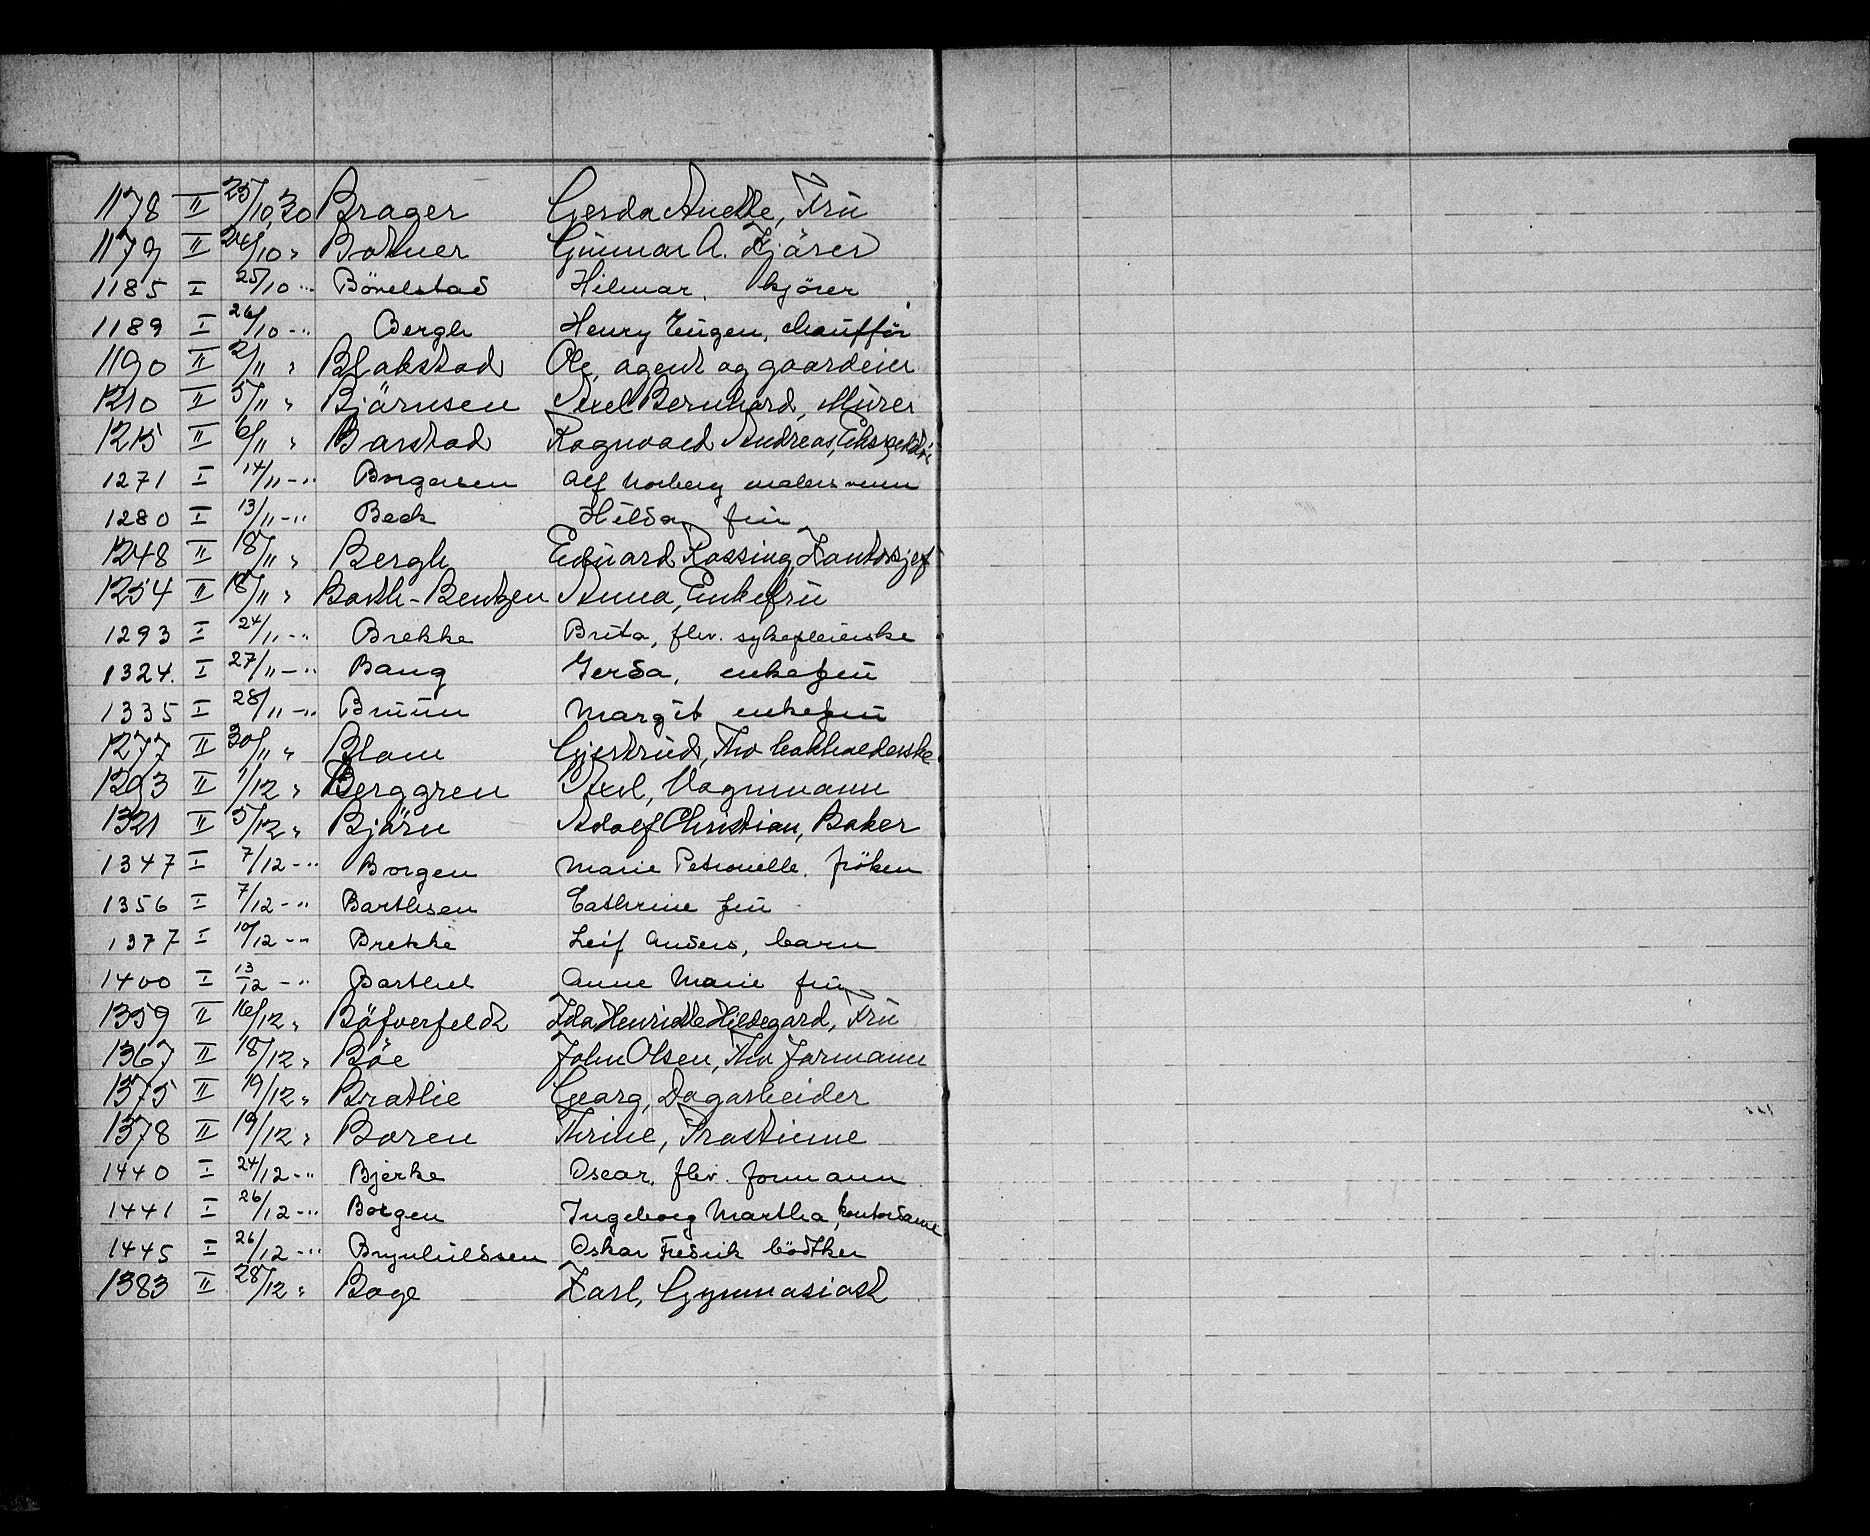 1178 II 25/10,30 Brager Gerda Anette, Fru
1179 II 24/10 " Botner Gunnar A. Kjører
1185 I 25/10 -" Bönelstad Hilmar, kjører
1189 I 26/10 -" Bergh Henry Eugen, chauffør
1190 II 2/11 " Blakstad Ole, agent og gaardeier
1210 II 5/11 " Björnsen Axel Bernhard, Murer
1215 II 6/11 " Barstad Ragnvald Andreas,
1271 I 14/11 -" Borgersen Alf Norberg malersvenn
1280 I 13/11 -" Beck Hilda, fru
1248 II 18/11 " Bergh Eduard Rossing, Kontorsjef
1254 II 18/11 " Barth-Bentzen Anna, Enkefru
1293 I 24/11 -" Brekke Brita, fhv. sykepleierske
1324. I 27/11 -" Bang Gerda, enkefru
1335 I 28/11 -" Bruun Margit enkefru
1277 II 30/11 " Blom Gjertrud, Fhv bokholderske
1293 II 1/12 " Berggren Axel, Vognmann
1321 II 5/12 " Björn Adolf Christian, Baker
1347 I 7/12 -" Borgen Marie Petronelle, fröken
1356 I 7/12 -" Barthsen Cathrine fru
1377 I 10/12 -" Brekke Leif Anders, barn
1400 I 13/12 -" Barthel Anne Marie fru
1359 II 16/12 " Böfverfeldt Ida Henriette Hildegard, Fru
1367 II 18/12 " Böe John Olsen, Fhv Formann
1375 II 19/12 " Bratlie Georg, Dagarbeider
1378 II 19/12 " Boren Thrine, Prostinne
1440 I 24/12 -" Bjerke Oscar, fhv. formann
1441 I 26/12 -" Borgen Ingeborg Martha, kontordame
1445 I 26/12 -" Brynhildssen Oskar Fredrik bödtker
1383 II 28/12 " Boge Karl, Gymnasiast